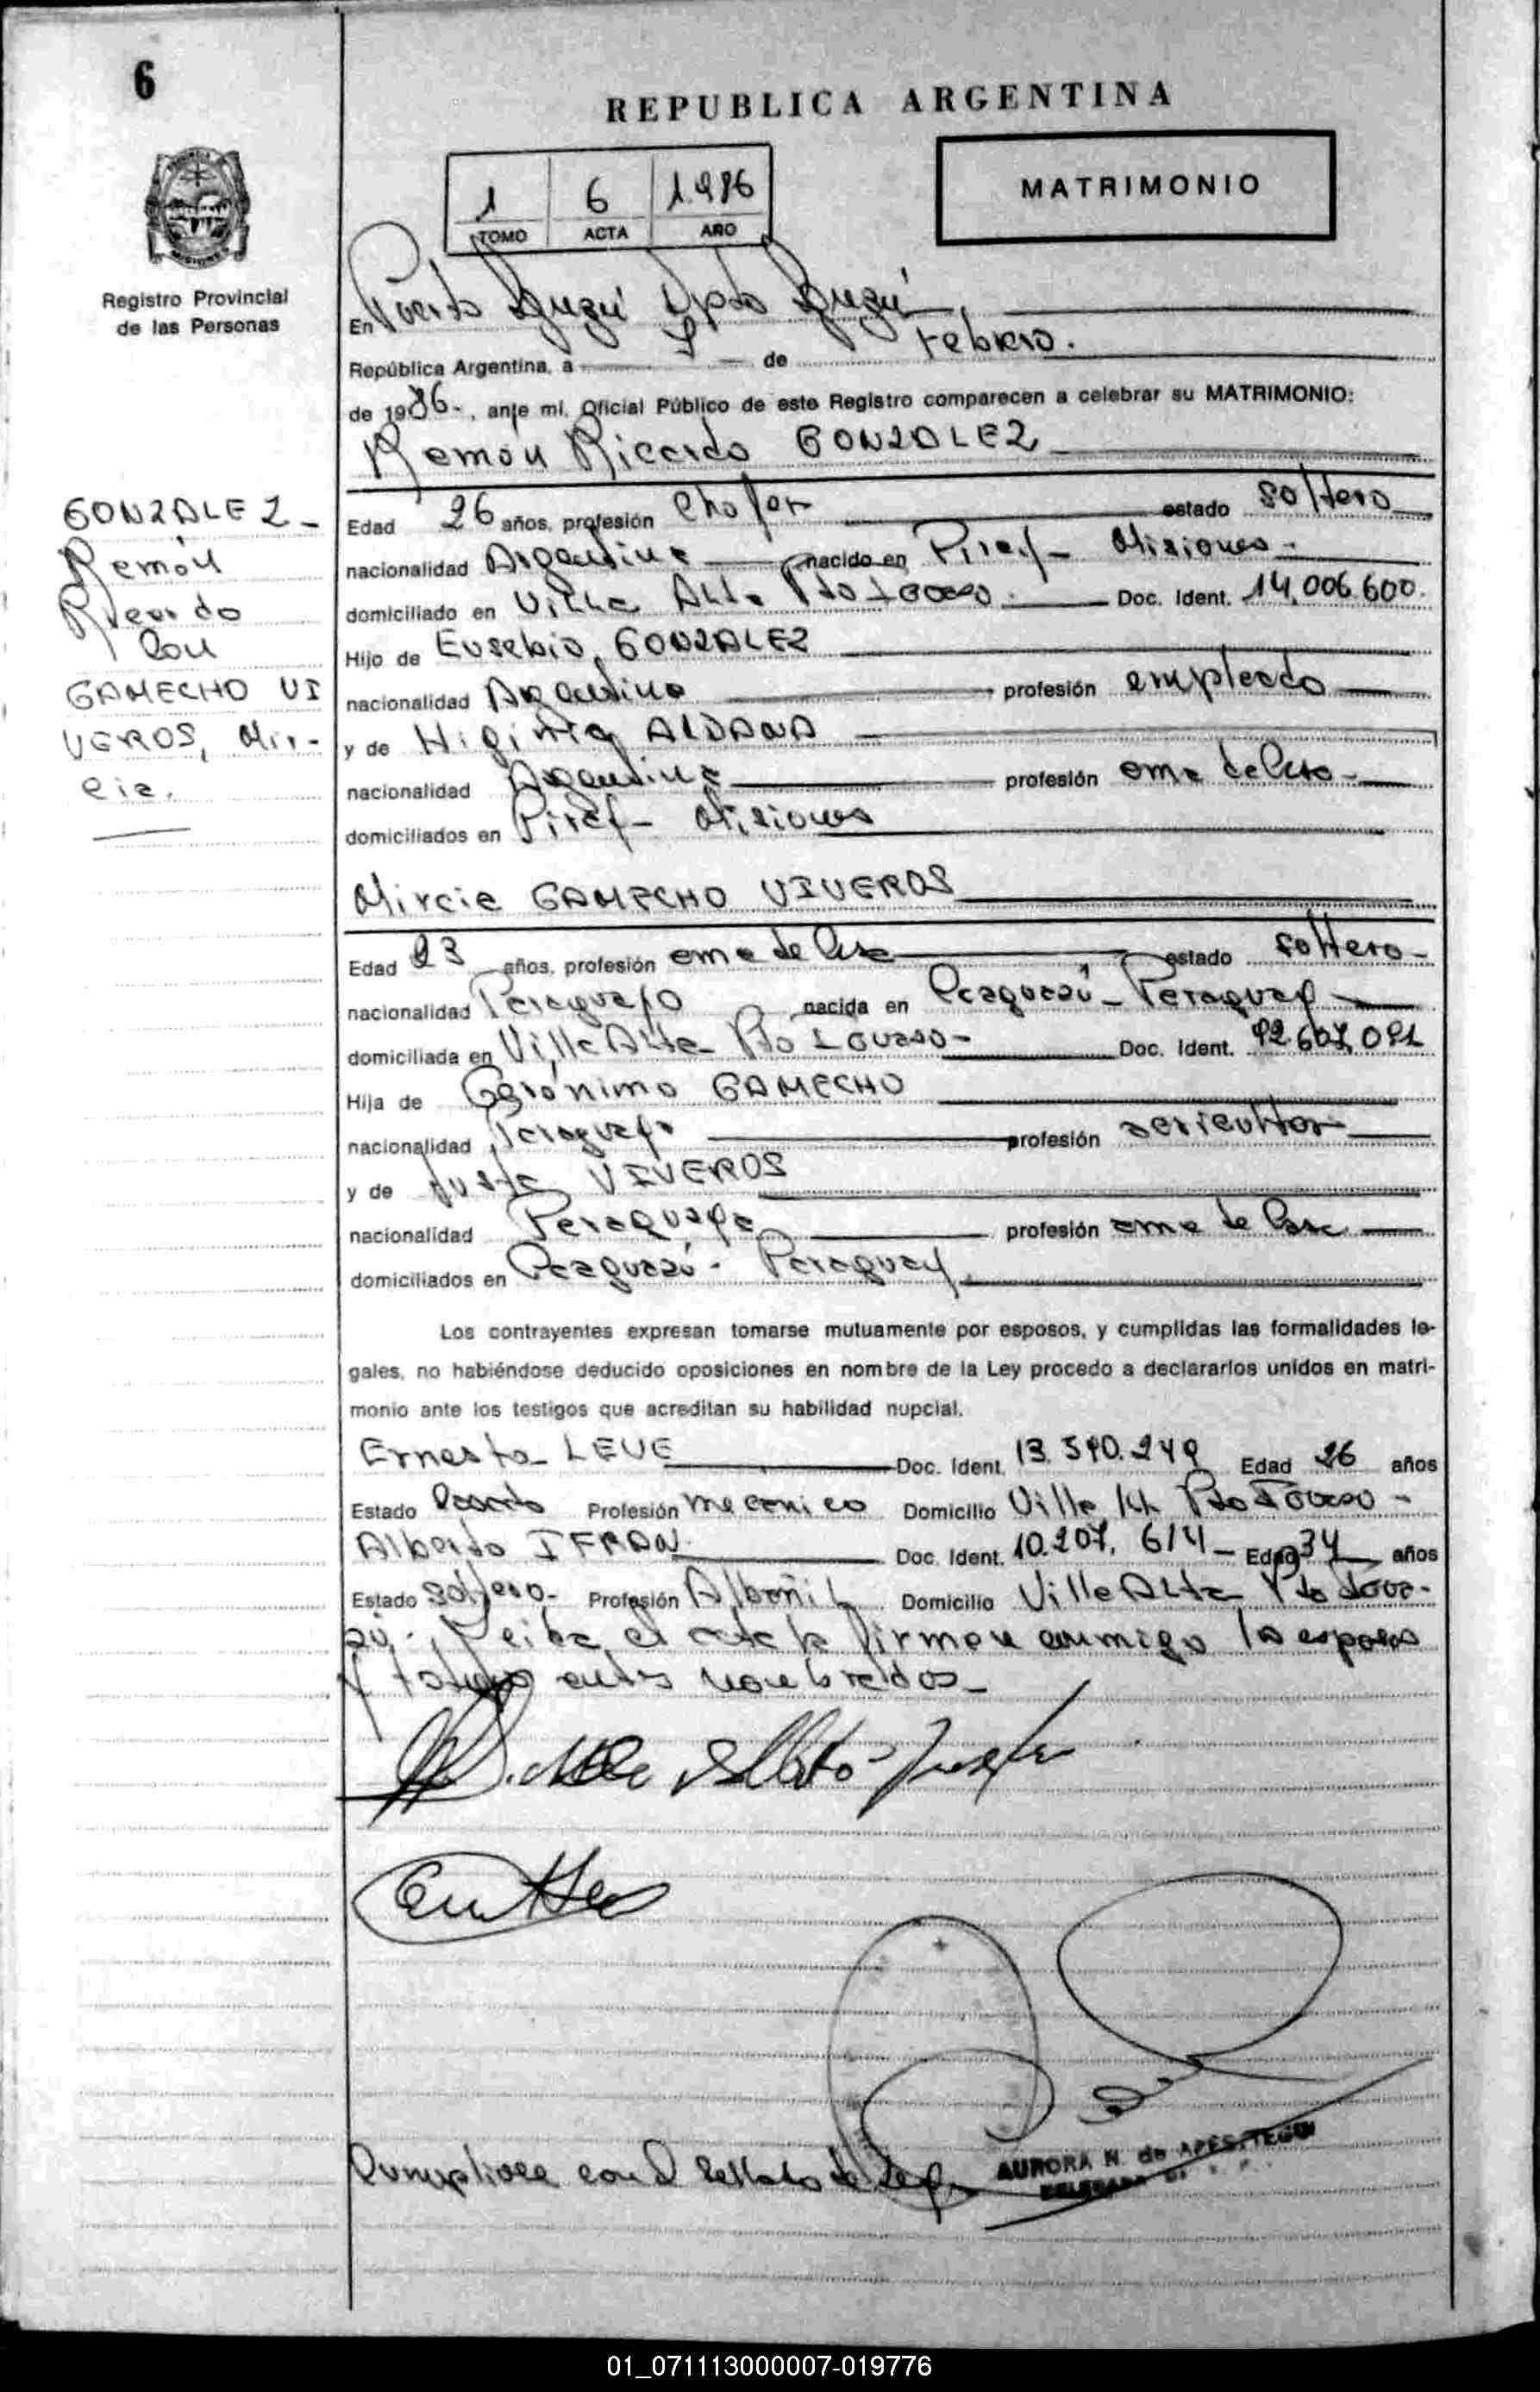 6
REPUBLICA ARGENTINA
1 6 1986
TOMO ACTA AÑO
MATRIMONIO
Registro Provincial
de las Personas
En Puerto Iguazú Dpto Iguazú
República Argentina, a de Febrero.
de 1986-, ante mí, Oficial Público de este Registro comparecen a celebrar su MATRIMONIO:
Ramón Ricardo GONZALEZ
GONZALEZ -
Ramón
Ricardo
Con
GAMECHO VI
VEROS, Mir-
cia.
Edad 26 años, profesión Chofer estado soltero
nacionalidad Argentina nacido en Piray - Misiones -
domiciliado en Villa Alta Pto Doc. Ident. 14.006.600.
Hijo de Eusebio GONZALEZ
nacionalidad Argentino profesión empleado
y de Higinia ALDANA
nacionalidad Argentina profesión ama de Casa -
domiciliados en Piray - Misiones
Mircia GAMECHO VIVEROS
Edad 23 años, profesión ama de Casa estado soltera -
nacionalidad Paraguaya nacida en Caaguazú - Paraguay
domiciliada en Villa Alta Pto Doc. Ident. 92.607.091
Hija de Gerónimo GAMECHO
nacionalidad Paraguaya profesión agricultor
y de Justa VIVEROS
nacionalidad Paraguaya profesión ama de Casa
domiciliados en Caaguazú - Paraguay
Los contrayentes expresan tomarse mutuamente por esposos, y cumplidas las formalidades le-
gales, no habiéndose deducido oposiciones en nombre de la Ley procedo a declararlos unidos en matri-
monio ante los testigos que acreditan su habilidad nupcial.
Ernesto LEUE Doc. Ident. 13.590.249 Edad 26 años
Estado Casado Profesión mecanico Domicilio Villa Alta Pto
Alberto IFRAN Doc. Ident. 10.207.614 - Edad 34 años
Estado soltero - Profesión Albañil Domicilio Villa Alta Pto
el acta la firman conmigo los esposos
y testigos antes nombrados -
Cumpliose con el Sellado de Ley
AURORA N. de APESTEGUI
DELEGADA
01_071113000007-019776